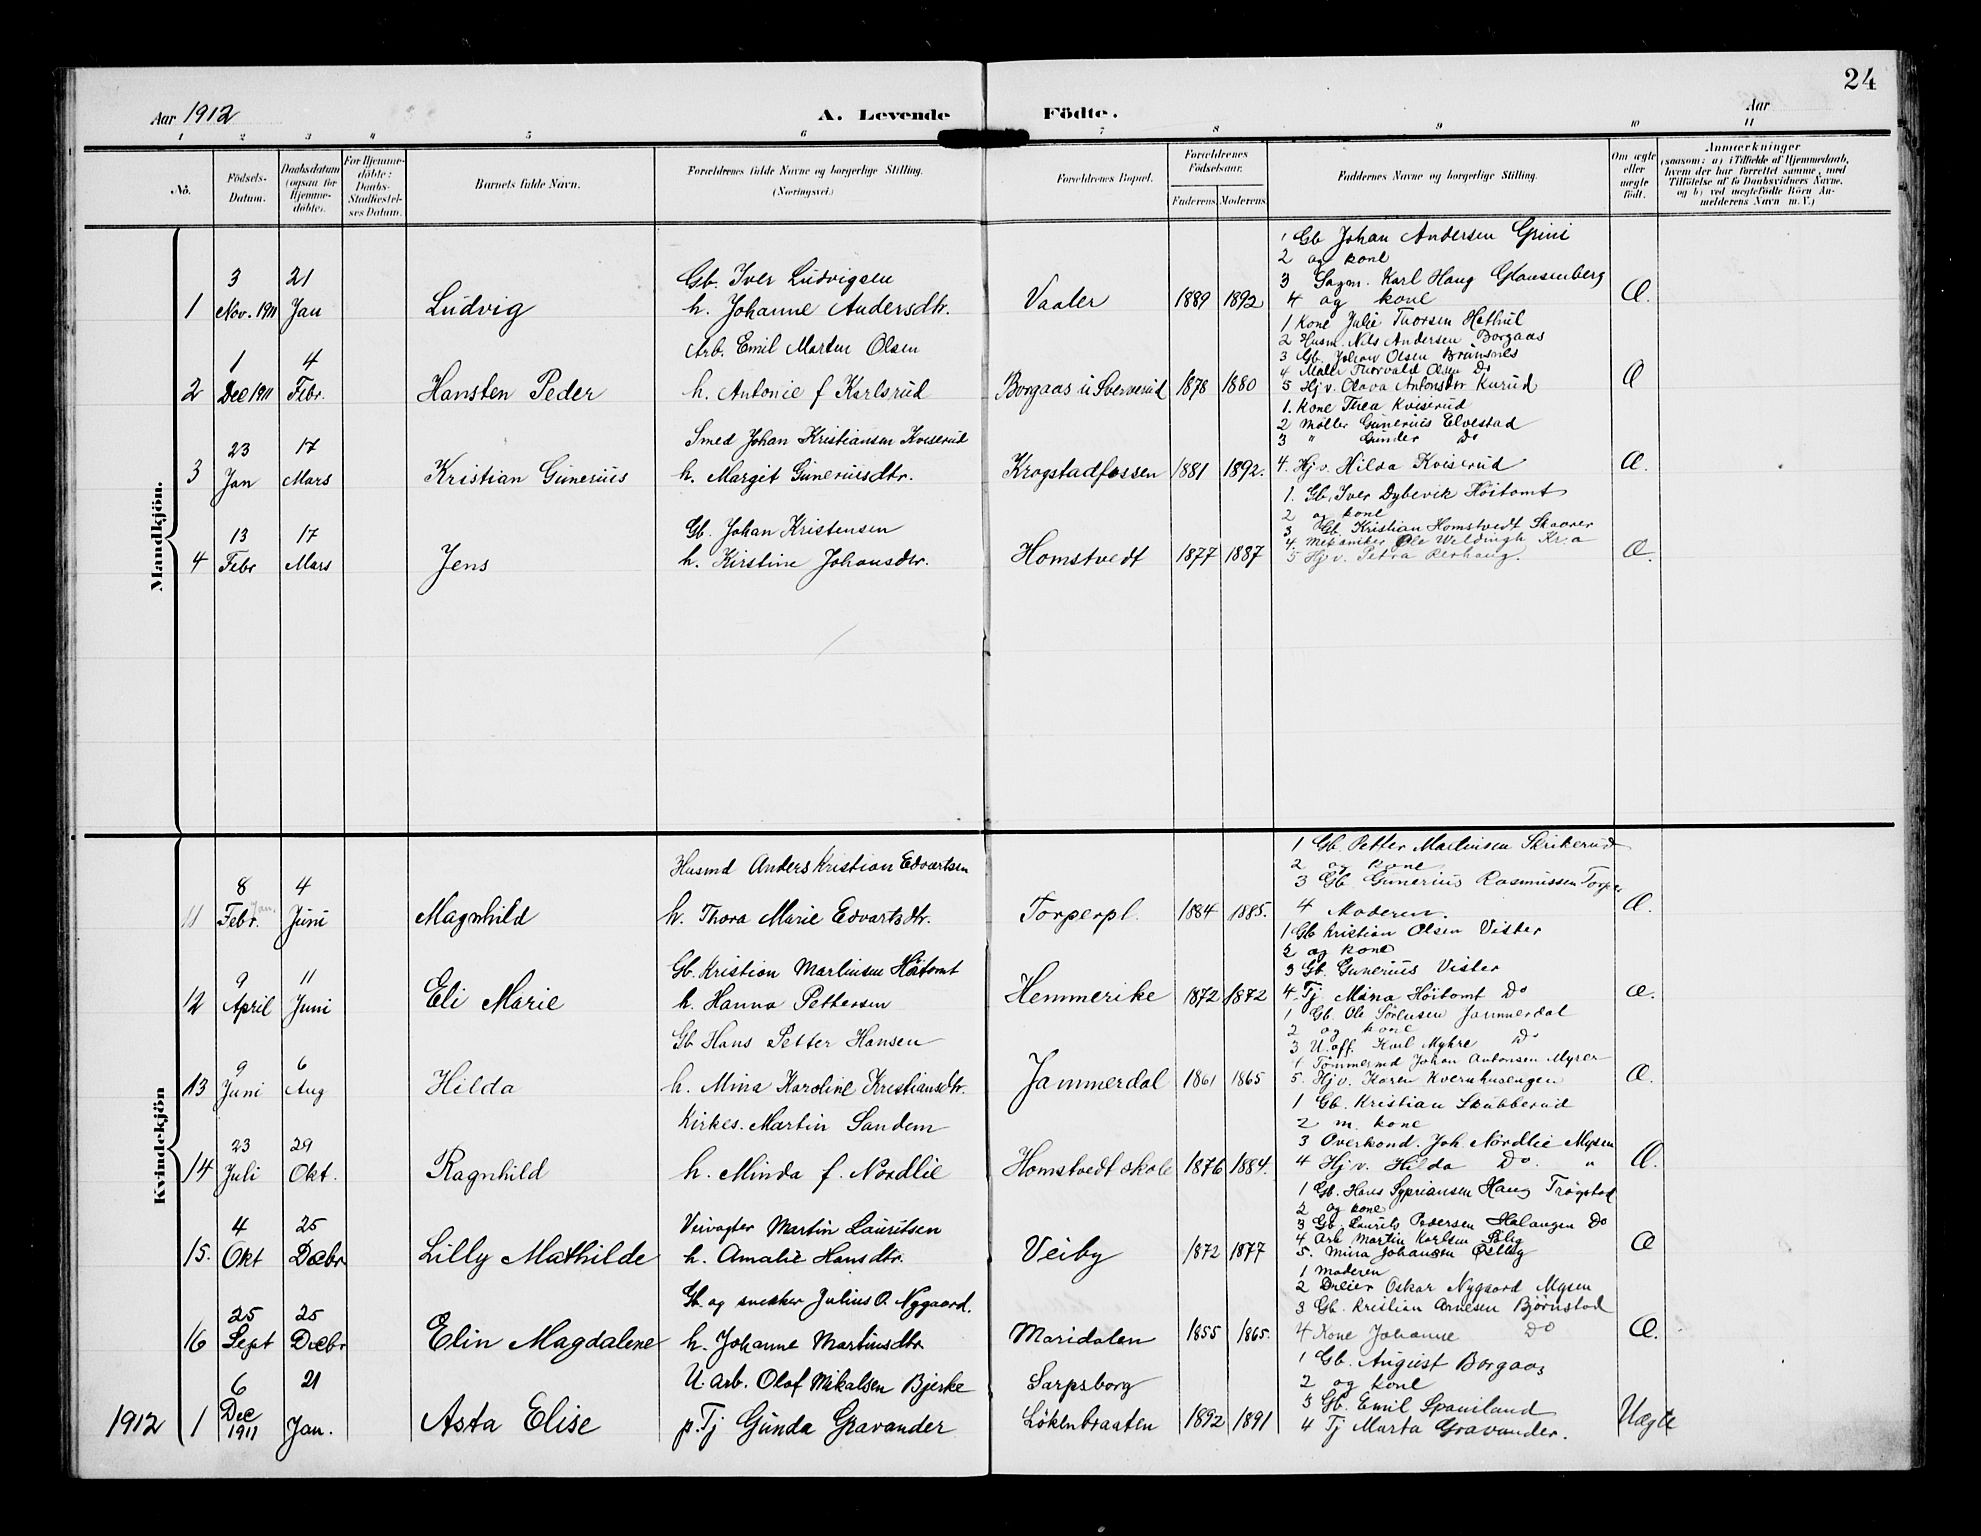 24
Aar 1912
A. Levende Födte.
Aar
1 2 3 4 5 6 7 8 9 10 11
Nô.
Födsels-Datum.
Daabsdatum (ogsaa for Hjemme-döbte).
For Hjemme-döbte: Daabs-Stadfæstel-ses Datum.
Barnets fulde Navn.
Forældrenes fulde Navne og borgerlige Stilling. (Næringsvei.)
Forældrenes Bopæl.
Forældrenes Födselsaar.
Faderens Moderens
Faddernes Navne og borgerlige Stilling.
Om ægte eller uægte födt.
Anmærkninger
(saasom: a) i Tilfælde af Hjemmedaab,
hvem der har forrettet samme, med
Tilföielse af to Daabsvidners Navne,
og b) ved uægtefödte Börn An-
melderens Navn m. V.)
Mandkjön.
1 3 Nov. 1911 21 Jan Ludvig
Gb. Iver Ludvigsen
h. Johanne Andersdtr.
Vaaler 1889 1892
1 Gb Johan Andersen Grini
2 og kone
3 Sagm. Karl Haug Glansenberg
4 og kone
Æ.
2 1 Dec 1911 4 Febr. Hansten Peder
Arb. Emil Martin Olsen
h. Antonie f Karlsrud
Borgaas u Sververud 1878 1880
1 Kone Julie Thorsen Hethul
2 Husm. Nils Andersen Borgaas
3 Gb. Johan Olsen Brunsnes
4 Maler Thorvald Olsen Do
5 Hj v. Olava Antonsdtr Kurud
Æ
3 23 Jan 17 Mars Kristian Gunerius
Smed Johan Kristiansen Kviserud
h. Margit Guneriusdtr.
Krogstadfossen 1881 1892.
1. Kone Thea Kviserud
2 Møller Gunerius Elvestad
3 " Gunder Do
4. Hj v. Hilda Kviserud
Æ.
4 13 Febr 17 Mars Jens
Gb. Johan Kristensen
h. Kirstine Johansdtr.
Homstvedt 1877 1887
1. Gb. Iver Dybevik Höitomt
2 og kone
3 Gb Kristian Homstvedt Skaarer
4 Mekaniker Ole Weldingh Kr.a
5 Hj v. Petra Perhaug.
Æ.
Kvindekjön
11 8 Febr. Jan. 4 Juni Magnhild
Husmd Anders Kristian Edvartsen
h. Thora Marie Edvartsdtr.
Torperpl. 1884 1885.
1 Gb. Petter Martinsen Skrikerud
2 og kone
3 Gb. Gunerius Rasmussen Torper
4 Moderen.
Æ.
12 9 April 11 Juni Eli Marie
Gb. Kristian Martinsen Höitomt
h. Hanna Pettersen
Hemmerike 1872 1872
1 Gb Kristian Olsen Vister
2 og kone
3 Gb. Gunerius Vister
4. Tj Mina Höitomt Do
Æ.
13 9 Juni 6 Aug Hilda
Gb Hans Petter Hansen
h. Mina Karoline Kristiansdtr.
Jammerdal 1861 1865
1 Gb. Ole Sörensen Jammerdal
2 og kone
3 U.off. Karl Myhre Do
4 Tömmermd Johan Antonsen Myrer
5. Hj v. Karen Kvernhusengen
Æ.
14 23 Juli 29 Okt. Ragnhild
Kirkes. Martin Sandem
h. Minda f. Nordlie
Homstvedt skole 1876 1884.
1 Gb. Kristian Skubberud
2 m. kone
3 Overkond. Joh Nordlie Mysen
4 Hj v. Hilda Do. "
Æ.
15. 4 Okt 25 Decbr Lilly Mathilde
Veivogter Martin Lauritsen
h. Amalie Hansdtr.
Veiby 1872 1877
1 Gb. Hans Sypriansen Haug Trögstad
2 og kone
3 Gb. Laurits Pedersen Halangen Do
4 Arb Martin Karlsen
5. Mina Johansen
Æ
16 25 Sept 25 Decbr Elin Magdalene
Gb. og snekker Julius O. Nygaard.
h. Johanne Martinsdtr
Maridalen 1855 1865.
1 Moderen
2 Dreier Oskar Nygaard Mysen
3 Gb. Kristian Arnesen Björnstad
4 Kone Johanne Do
Æ.
1912 1 6 Dec 1911 21 Jan. Asta Elise
U. arb. Olaf Mikalsen Bjerke
p. Tj Gunda Gravander
Sarpsborg
Lökenbraaten 1892 1891
1 Gb. August Borgaas
2 og kone
3 Gb. Emil Spaniland
4 Tj Marta Gravander.
Uægte